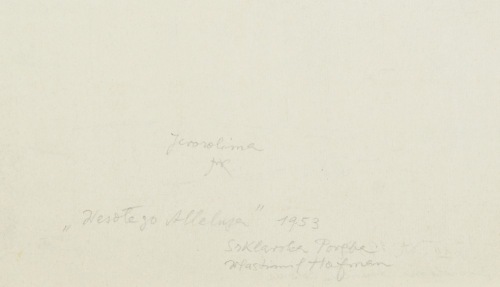 Jerozolima
„Wesołego Alleluja" 1953
Szklarska Poręba
Wlastimil Hofman